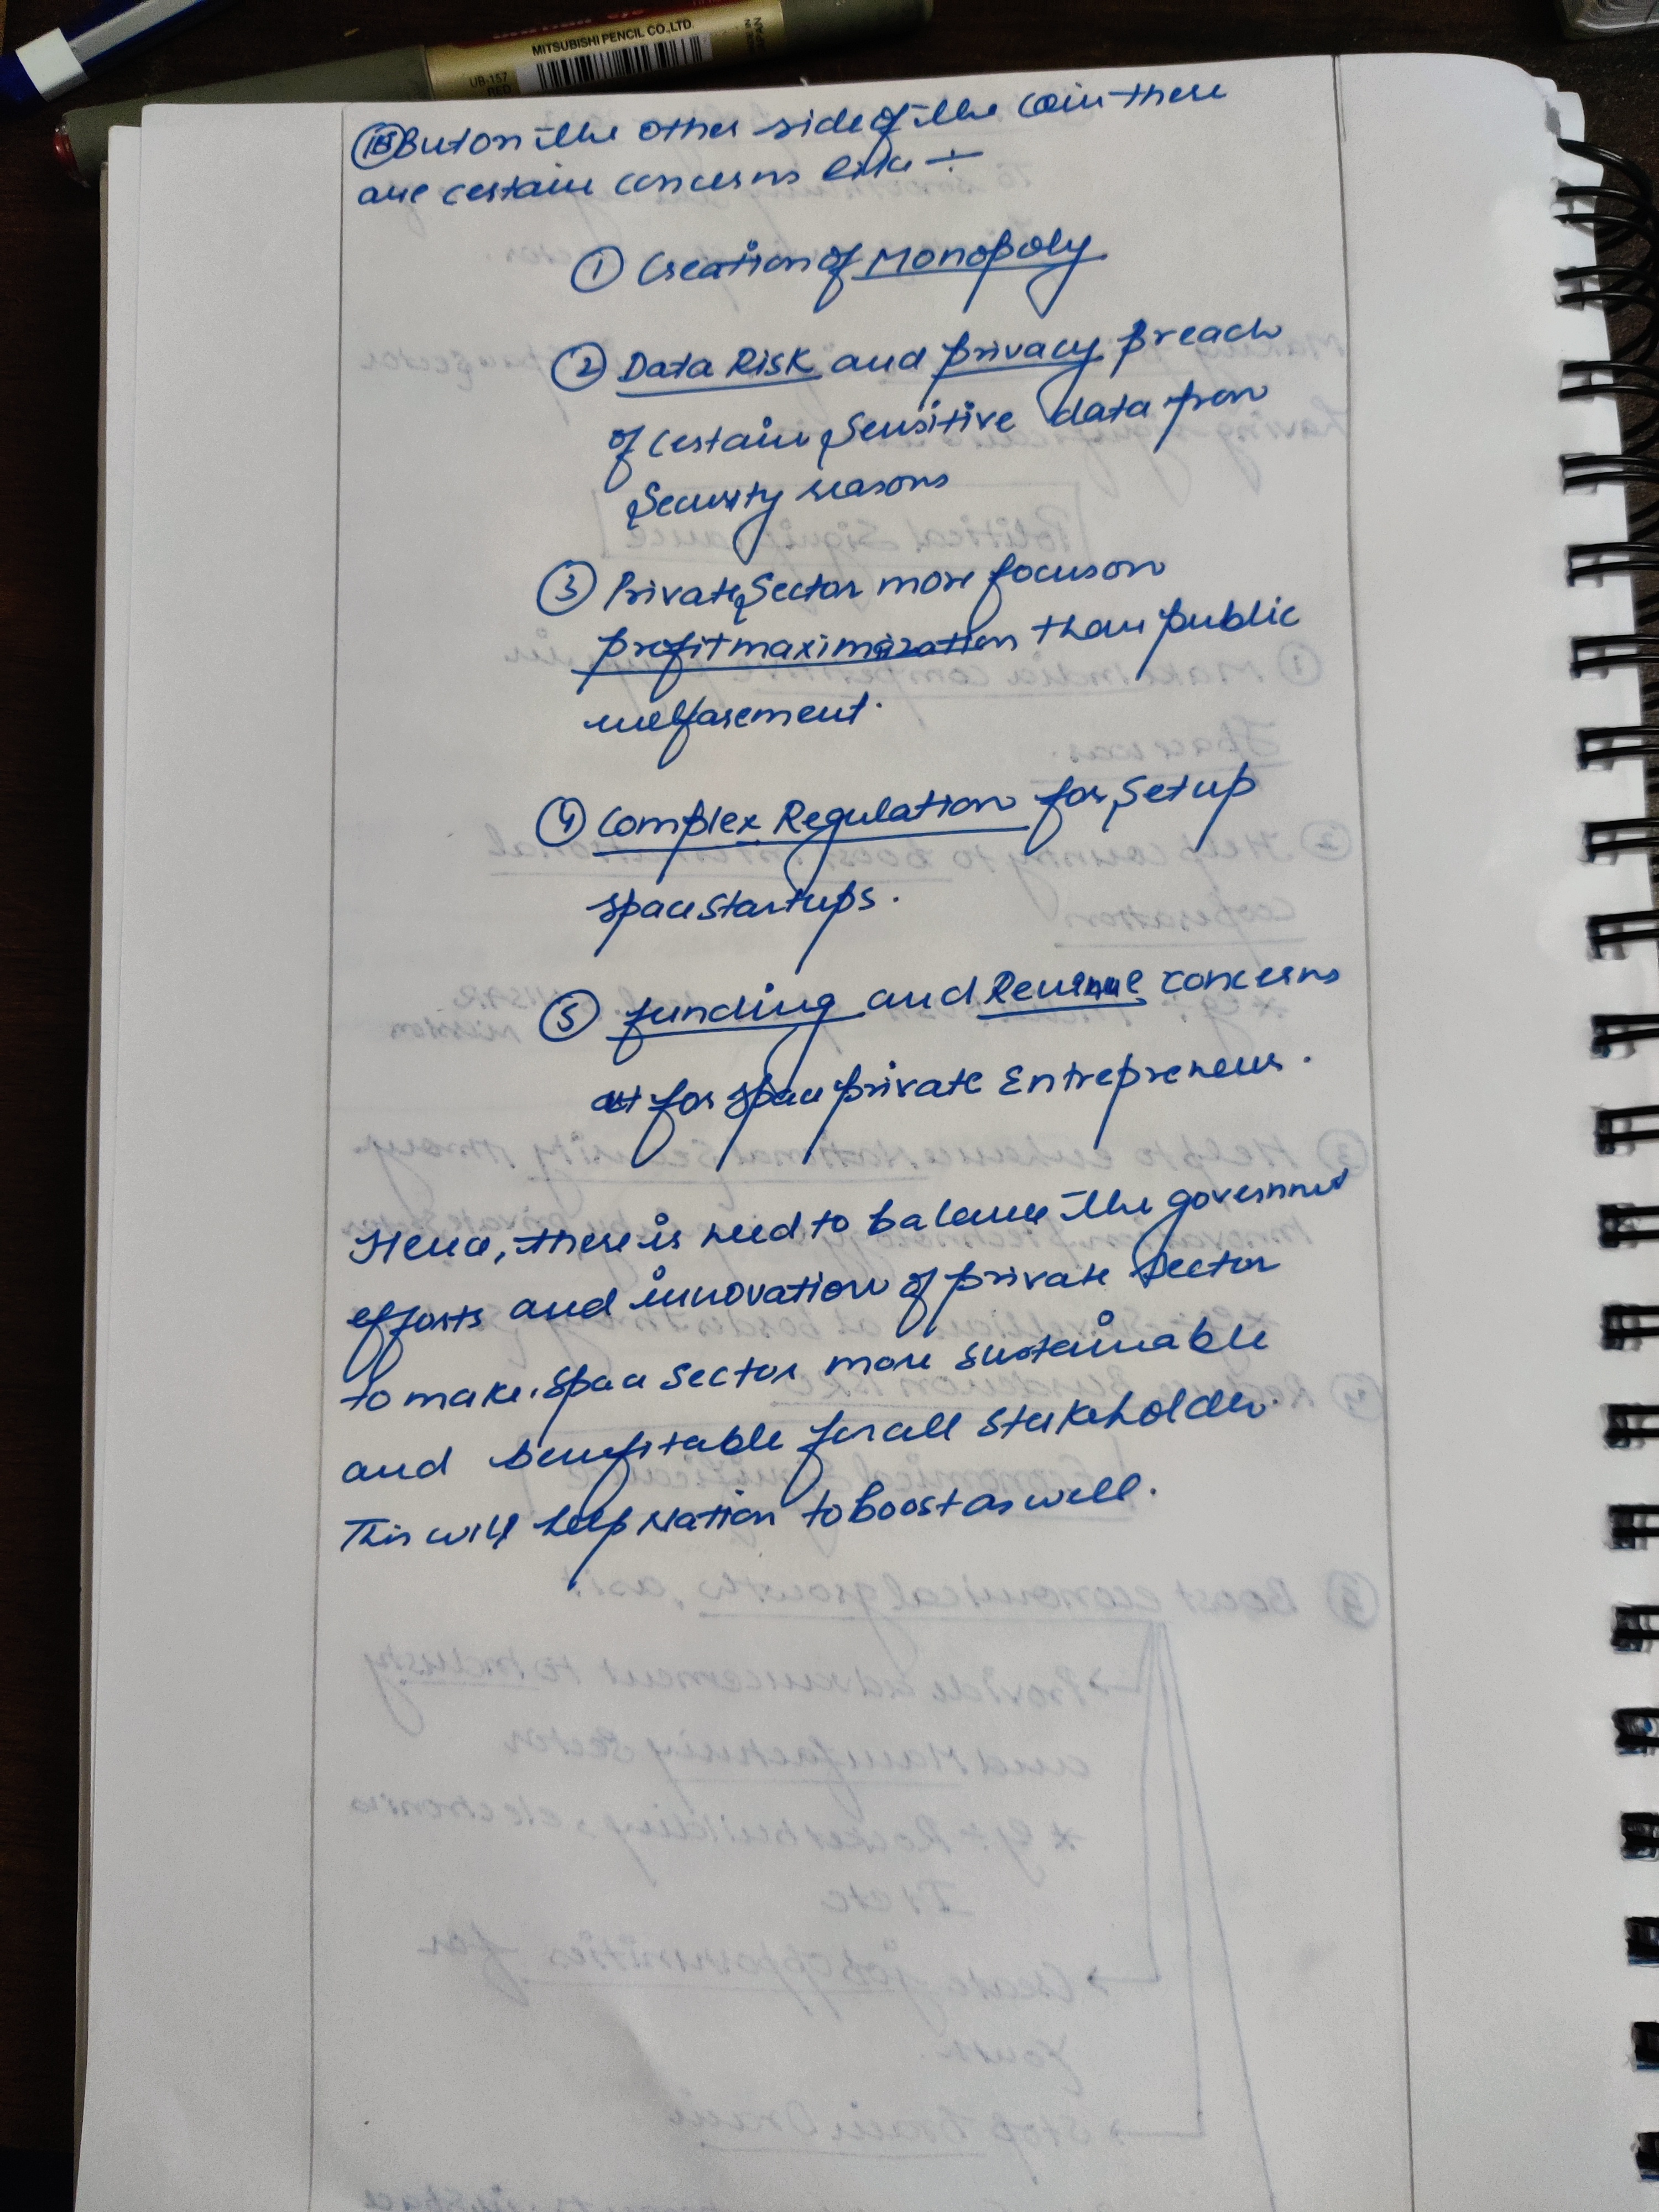 MITSUBISHI PENCIL CO., LTD.
UB-157
RED
But on the other side of the coin there
are certain concerns like ÷
① Creation of Monopoly
② Data Risk and privacy breach
of certain Sensitive data from
Security reasons
③ Private Sector more focus on
profit maximization than public
welfarement.
④ Complex Regulation for Setup
space startups.
⑤ funding and Revenue concerns
for space private Entrepreneurs.
Hence, there is need to balance the government
efforts and innovation of private sector
to make space sector more sustainable
and benefitable for all stakeholder.
This will help Nation to boost as well.